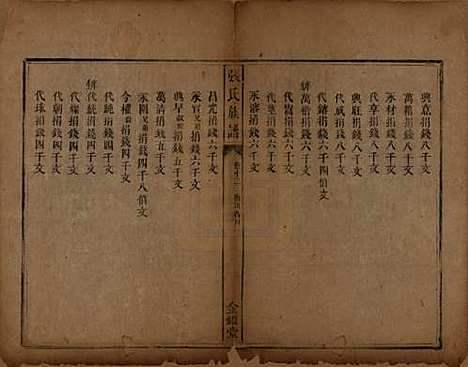 興嘉捐錢八千文
萬箱捐錢八千文
永材捐錢八千文
代享捐錢八千文
興旺捐錢八千文
代成捐錢八千文
代鏞捐錢六千四佰文
萬榆捐錢六千文
代富捐錢六千文
代集捐錢六千文
永濬捐錢六千文
張氏族譜
金鑑堂
昌元捐錢六千文
永官兄弟捐錢六千文
興早叔姪捐錢五千文
萬清捐錢五千文
永剛兄弟捐錢四千八佰文
今權捐錢四千文
代純捐錢四千文
代統捐錢四千文
代燦捐錢四千文
代朝捐錢四千文
代珠捐錢四千文